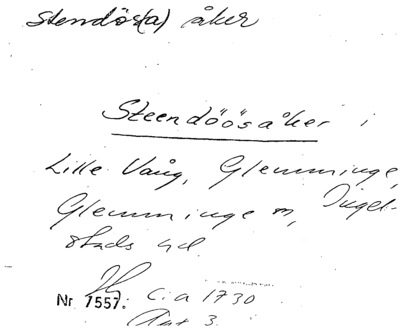 Stendös(a) åker
Steendöösåker i
Lille Vång, Glemminge,
Glemminge sn, Ingel-
stads hd.
Nr 7557. C:a 1730
Akt 3.